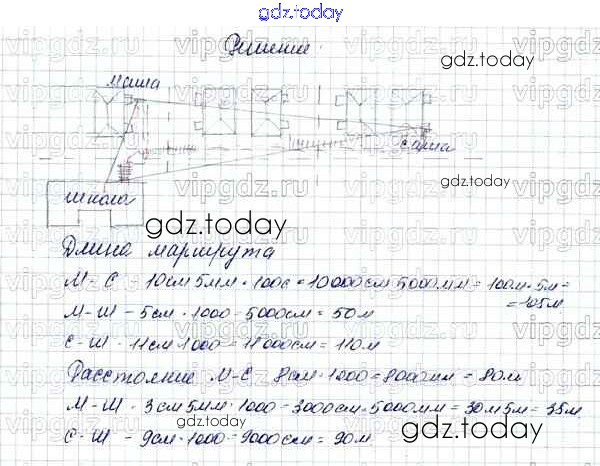 gdz.today
Решение.
gdz.today
Маша
Саша
gdz.today
школа
gdz.today
Длина маршрута
М-С 10см 5мм · 1000 = 10000см 5000мм = 100м · 5м =
= 105м
М-Ш - 5см · 1000 - 5000см = 50м
С-Ш - 11см · 1000 = 11000см = 110м
Расстояние М-С 8см · 1000 = 8000мм = 80м
М-Ш - 3см 5мм · 1000 - 3000см · 5000мм = 30м 5м = 35м
gdz.today
С-Ш - 9см · 1000 - 9000см = 90м
gdz.today
vipgdz.ru